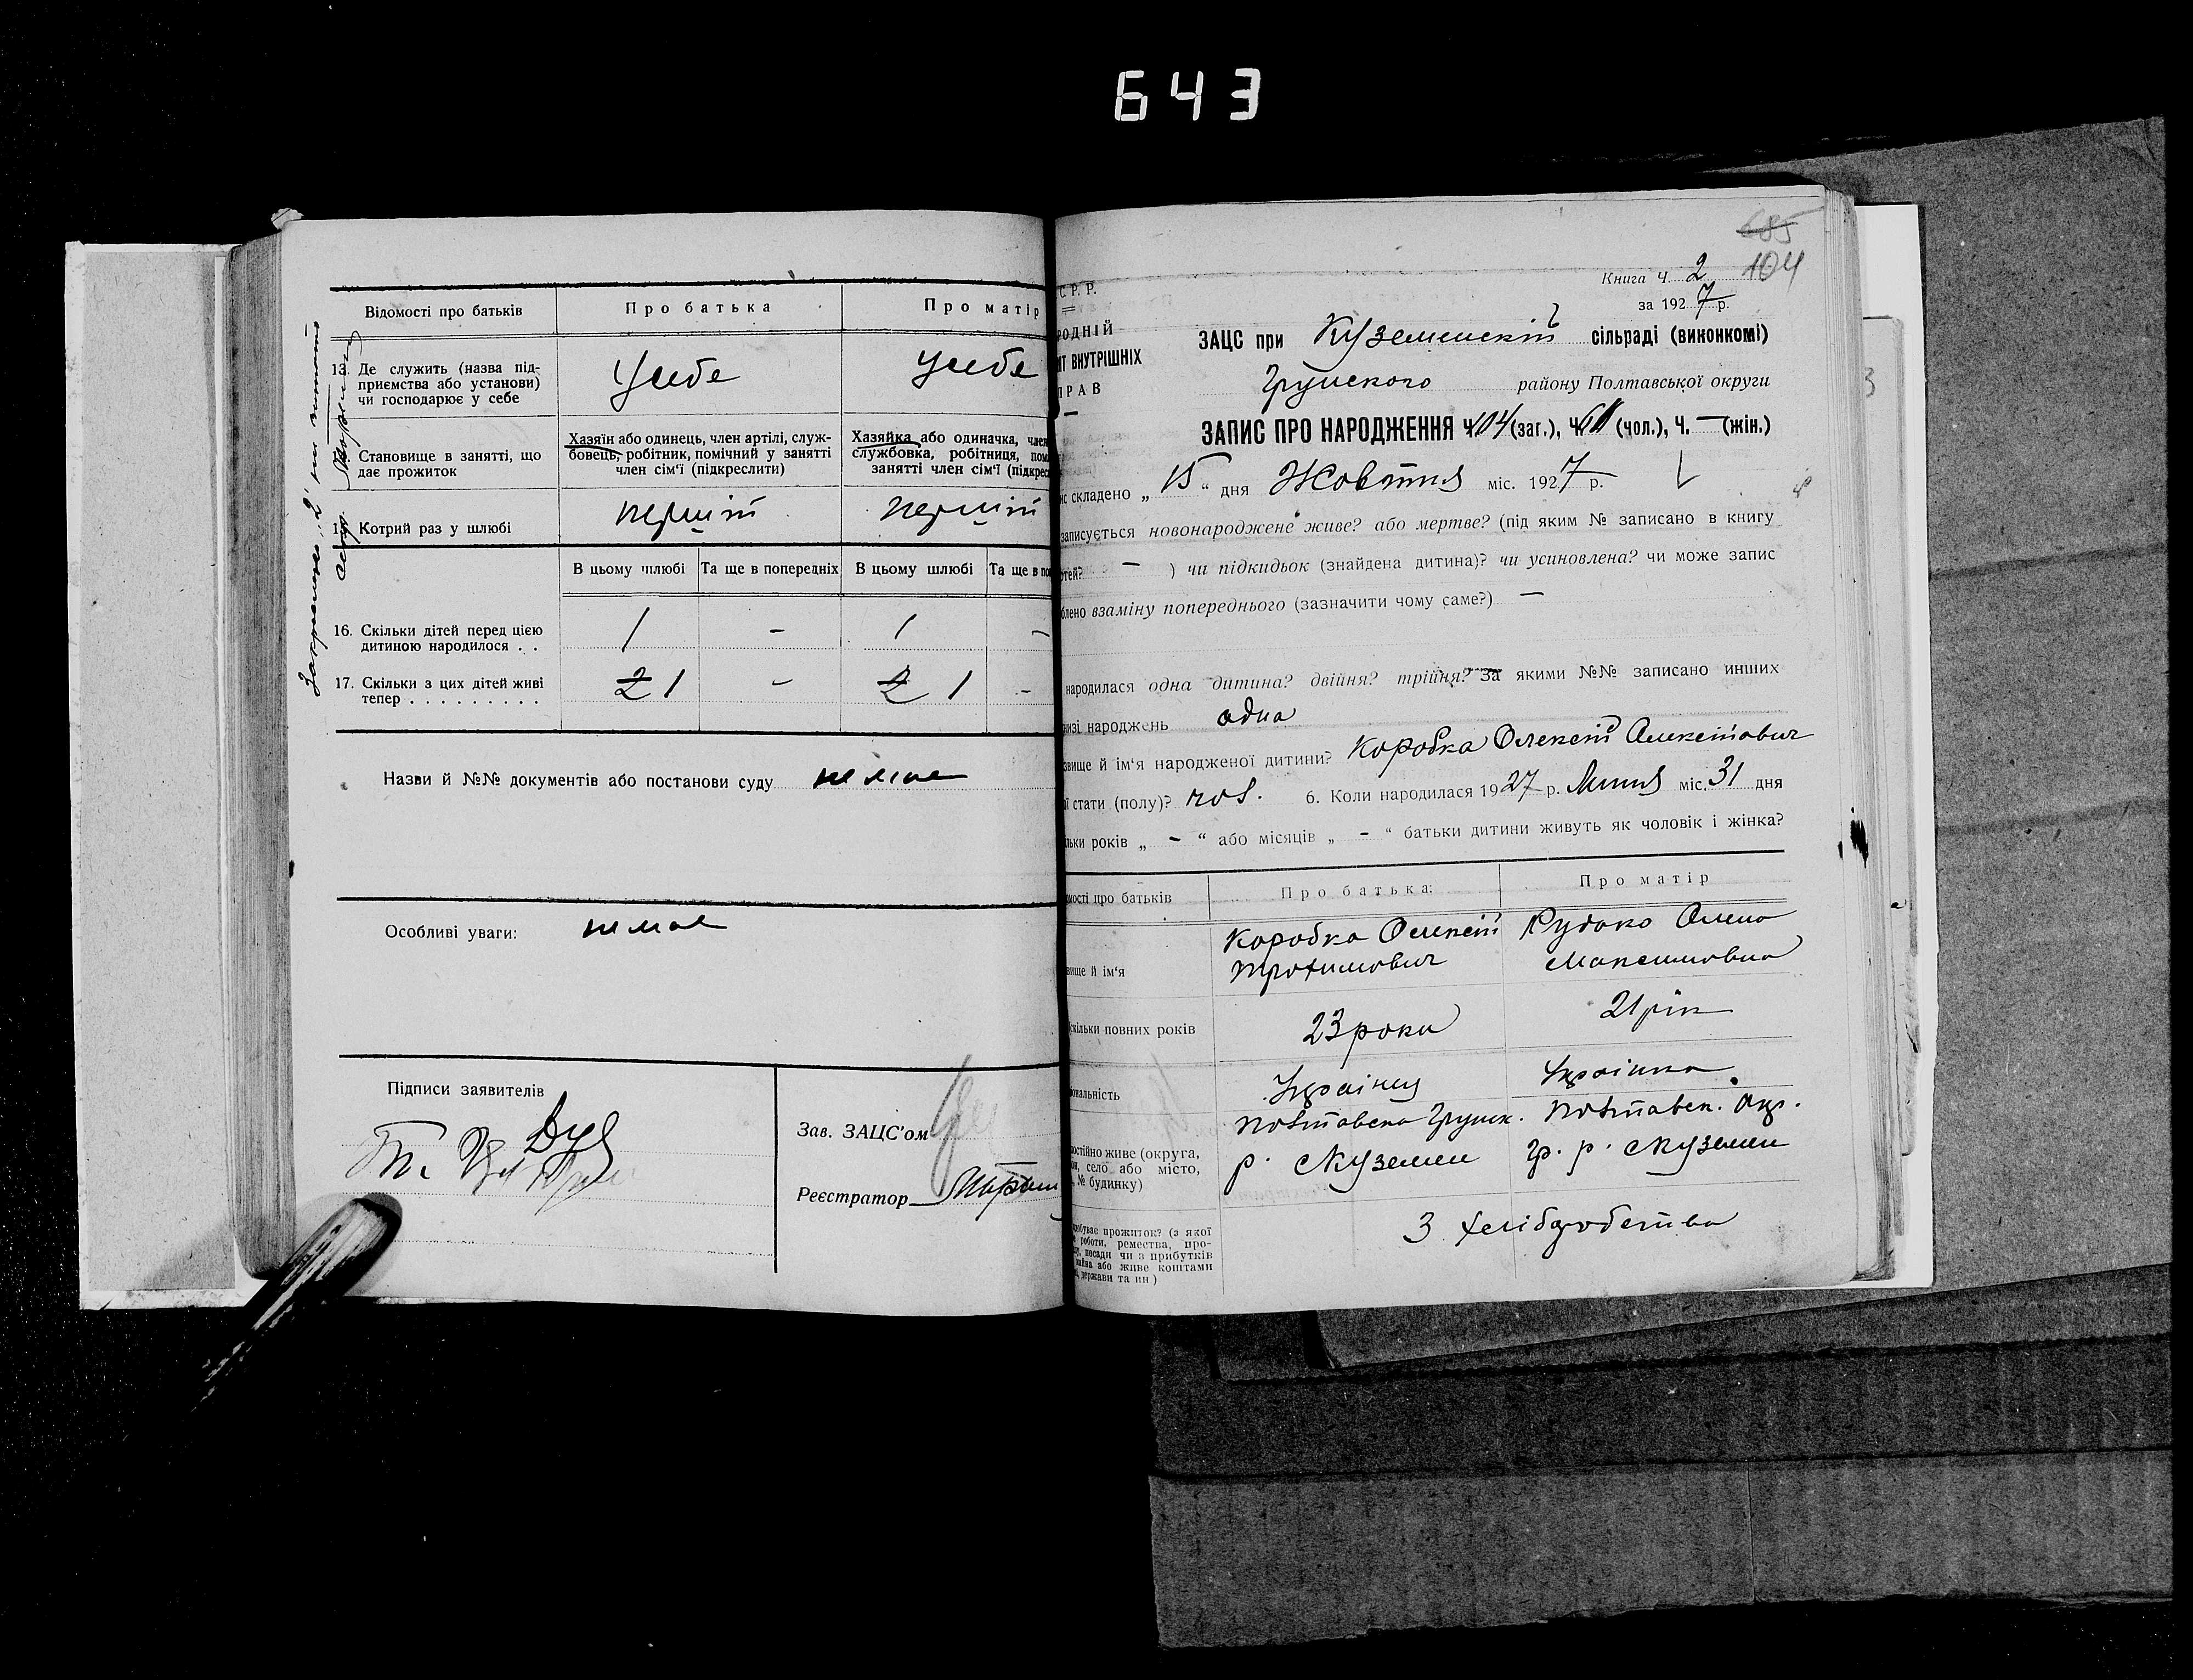 643
Відомості про батьків
Про батька
Про матір
13. Де служить (назва під-
приємства або установи)
чи господарює у себе
У себе
У себе
Становище в занятті, що
дає прожиток
Хазяїн або одинець, член артілі, служ-
бовець, робітник, помічний у занятті
член сім'ї (підкреслити)
Хазяйка або одиначка, член
службовка, робітниця, пом
занятті член сім'ї (підкрес
1 Котрий раз у шлюбі
перший
перший
В цьому шлюбі
Та ще в попередніх
В цьому шлюбі
Та ще в по
16. Скільки дітей перед цією
дитиною народилося . .
1
-
1
-
17. Скільки з цих дітей живі
тепер . . . . . . . . .
2 1
-
2 1
-
Назви й №№ документів або постанови суду немає
Особливі уваги: немає
Підписи заявителів
Зав. ЗАЦС'ом
Реєстратор
685
Книга Ч. 2 104
за 1927 р.
С. Р. Р.
РОДНІЙ
ІТ ВНУТРІШНІХ
ПРАВ
ЗАЦС при Куземенській сільраді (виконкомі)
Грунського району Полтавської округи
ЗАПИС ПРО НАРОДЖЕННЯ Ч. 104 (заг.), Ч. (чол.), Ч. — (жін.)
ис складено „ 15 “ дня Жовтня міс. 1927 р.
записується новонароджене живе? або мертве? (під яким № записано в книгу
ртей? — ) чи підкидьок (знайдена дитина)? чи усиновлена? чи може запис
блено взаміну попереднього (зазначити чому саме?) —
народилася одна дитина? двійня? трійня? за якими №№ записано инших
изі народжень одна
звище й ім'я народженої дитини? Коробка Олексій Олексійович
ої стати (полу)? чол. 6. Коли народилася 1927 р. Липня міс. 31 дня
льки років „ - “ або місяців „ - “ батьки дитини живуть як чоловік і жінка?
мості про батьків
Про батька:
Про матір
вище й ім'я
Коробка Олексій
Трохимович
Олена
Максимовна
скільки повних років
23 роки
21 рік
іональність
Українец
Українка
постійно живе (округа,
он, село або місто,
, № будинку)
Полтавска Грунск.
р. с Куземен
Полтавск. окр.
Гр. р. с Куземен
здобуває прожиток? (з якої
е роботи, ремества, про-
у, посади чи з прибутків
майна або живе коштами
ї, держави та ин )
З хліборобства